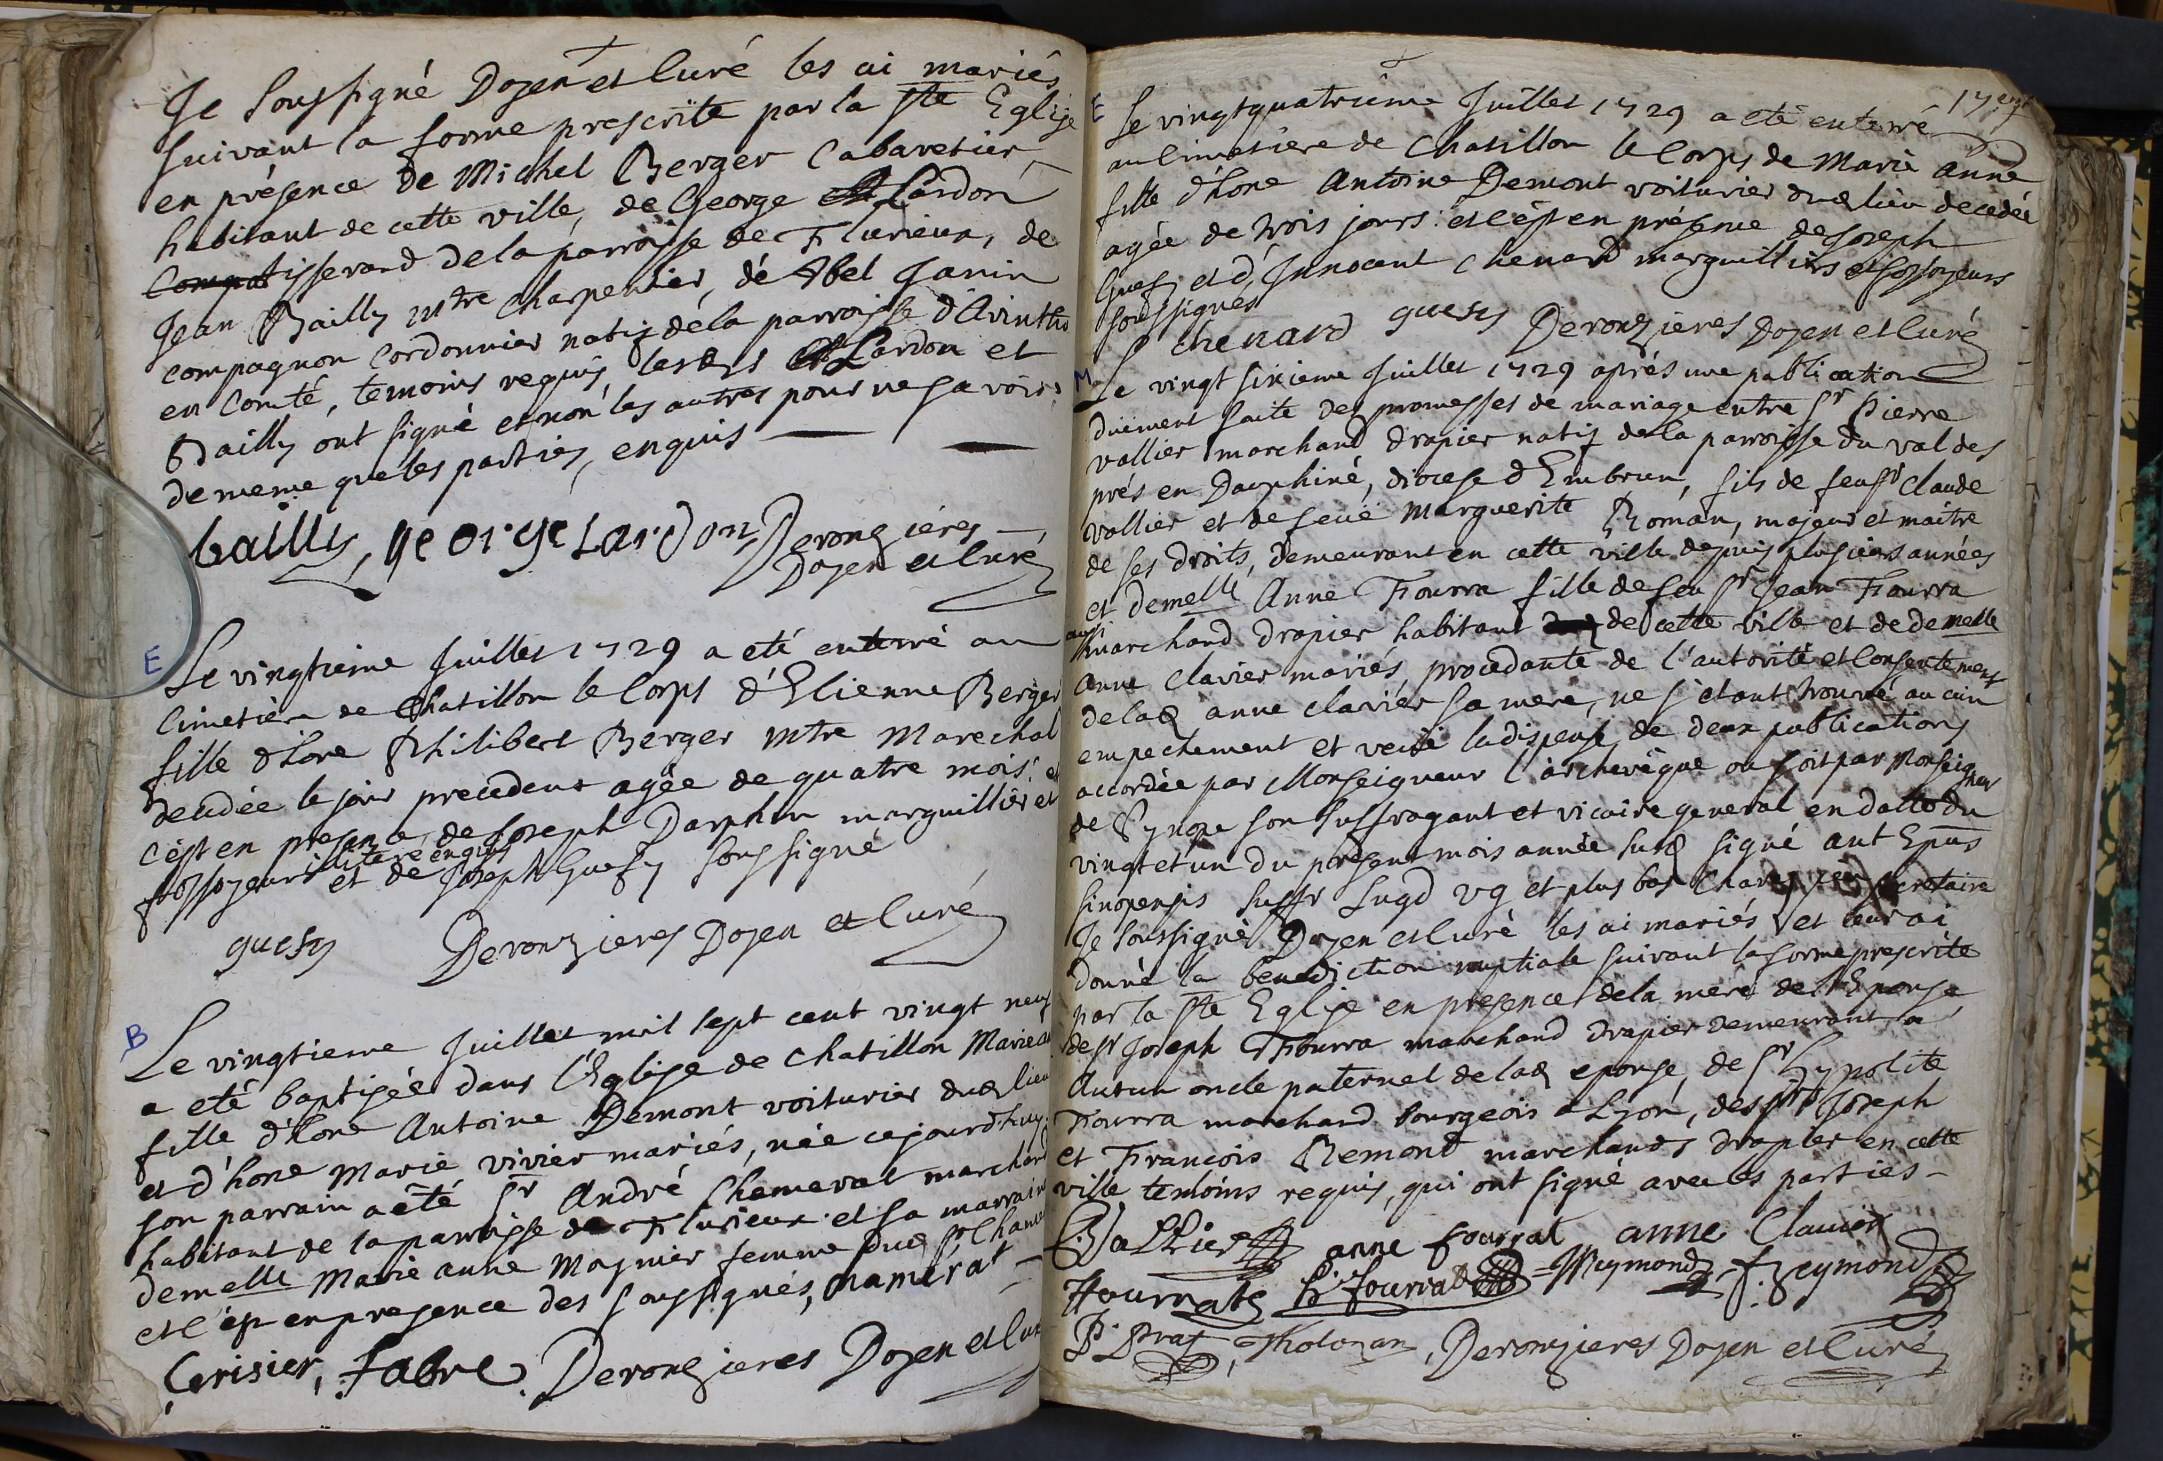 Je soussigné Doyen et Curé les ai mariés
suivant la forme prescrite par la Ste Eglise
en présence de Michel Berger Cabaretier
habitant de cette ville, de George Lardon
tisserand de la parroisse de Flurieux, de
Jean Bailly mtre charpentier, de Abel Janin
compagnon Cordonnier natif de la parroisse d'
en Comté, temoins requis, lesds Lardon et
Bailly ont signé et non les autres pour ne savoir,
de meme que les parties, enquis
bailly, george Lardon Deronzieres
Doyen et Curé
E
Le vingtieme Juillet 1729 a eté enterré au
Cimetiere de Chatillon le Corps d'Etienne Berger
fille d'hone Philibert Berger mtre Marechal
decedée le jour precedent agée de quatre mois: et
c'est en presence de Joseph Darphin marguillier et
fossoyeur illiteré enquis
et de Joseph Guesy soussigné
guesy Deronzieres Doyen et Curé
B
Le vingtieme Juillet mil sept cent vingt neuf
a eté baptisée dans l'Eglise de Chatillon Marie
fille d'hone Antoine Demont voiturier dud lieu
et d'hone Marie vivier mariés, née cejourdhuy:
son parrain a eté Sr André Chamerat marchand
habitant de la parroisse de Flurieux et sa marraine
demelle Marie anne Magnier femme dud Sr
et c'est en presence des soussignés, chamerat
Cerisier, Fabre Deronzieres Doyen et Curé
17
E
Le vingtquatrieme Juillet 1729 a eté enterré
au Cimetiere de Chatillon le Corps de Marie Anne
fille d'hone Antoine Demont voiturier dud lieu decedée
agée de trois jours: et c'est en présence de Joseph
Guesy et d'Innocent Chenard marguilliers et fossoyeurs
soussignés
chenard guesy Deronzieres Doyen et Curé
M
Le vingt sixieme Juillet 1729 aprés une publication
duement faite des promesses de mariage entre Sr Pierre
vallier marchand drapier natif de la parroisse du val des
prés en Dauphiné, diocese d'Embrun, fils de feu Sr Claude
vallier et de feüe Marguerite Roman, majeur et maitre
de ses droits, demeurant en cette ville depuis plusieurs années
et demelle Anne Fourra fille de feu Sr Jean Fourra
aussi marchand drapier habitant de cette ville et de demelle
Anne Clavier mariés, procedante de l'autorité et consentement
de lad anne clavier sa mere, ne s'etant trouvé aucun
empechement et veüe la dispense de deux publications
accordée par Monseigneur l'archeveque ou soit par Monseigneur
de Synope son suffragant et vicaire general en datte du
vingt et un du present mois année susd signé Ant Epus
sinopensis suffr Lugd vg et plus bas secretaire
Je soussigné Doyen et Curé les ai mariés et leur ai
donné la benediction nuptiale suivant la forme prescrite
par la Ste Eglise en presence de la mere de l'Epouse
de Sr Joseph Fourra marchand drapier demeurant a
Autun oncle paternel de lad epouse, de Sr hypolite
Fourra marchand bourgeois a Lyon, des Srs Joseph
et François Remond marchands drapier en cette
ville temoins requis, qui ont signé avec les parties
Vallier anne fourrat anne Clavier
Fourrat h fourrat Reymond f. Reymond
P. Prat, Deronzieres Doyen et Curé